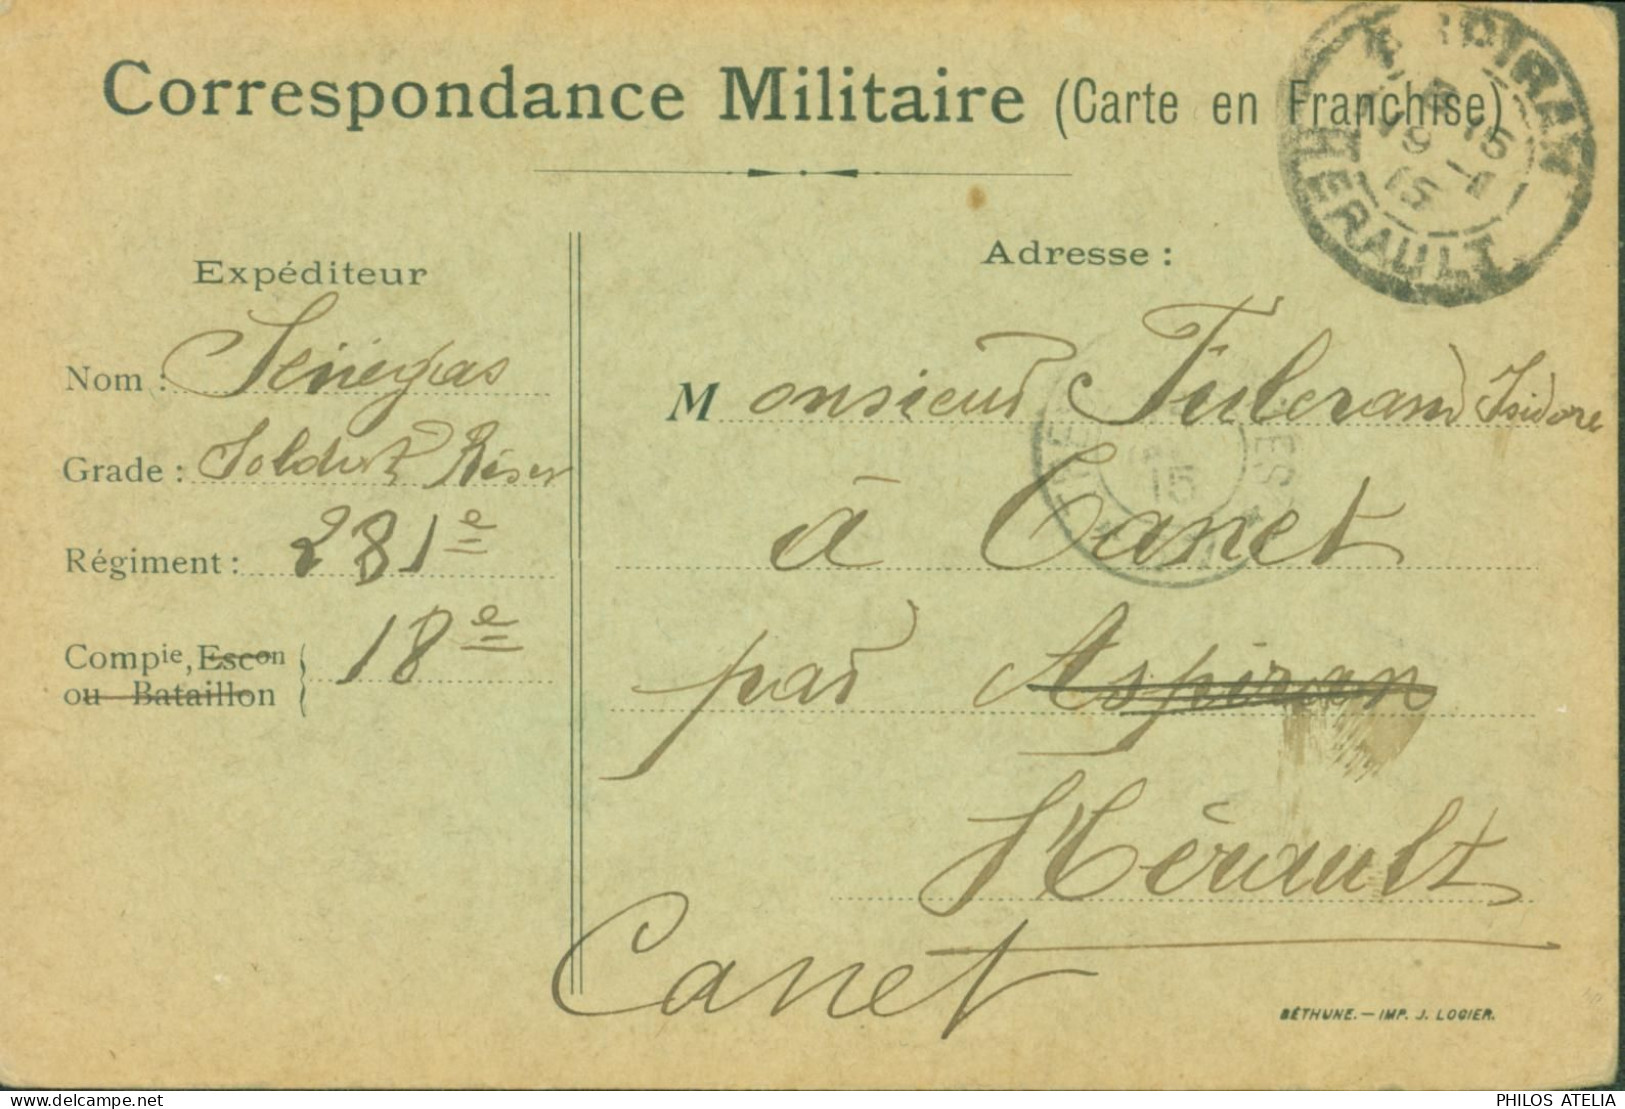 Correspondance Militaire (Carte en Franchise)
HERAULT
15
19 -1
15
Expéditeur
Nom : Sénégas
Grade : Soldat Réser
Régiment : 281e
Compie, Escon
ou Bataillon
18e
Adresse :
Monsieur Fulcrand Isidore
15
à Canet
par Aspiran
Hérault
Canet
BÉTHUNE. — IMP. J. LOGIER.
PHILOS ATELIA